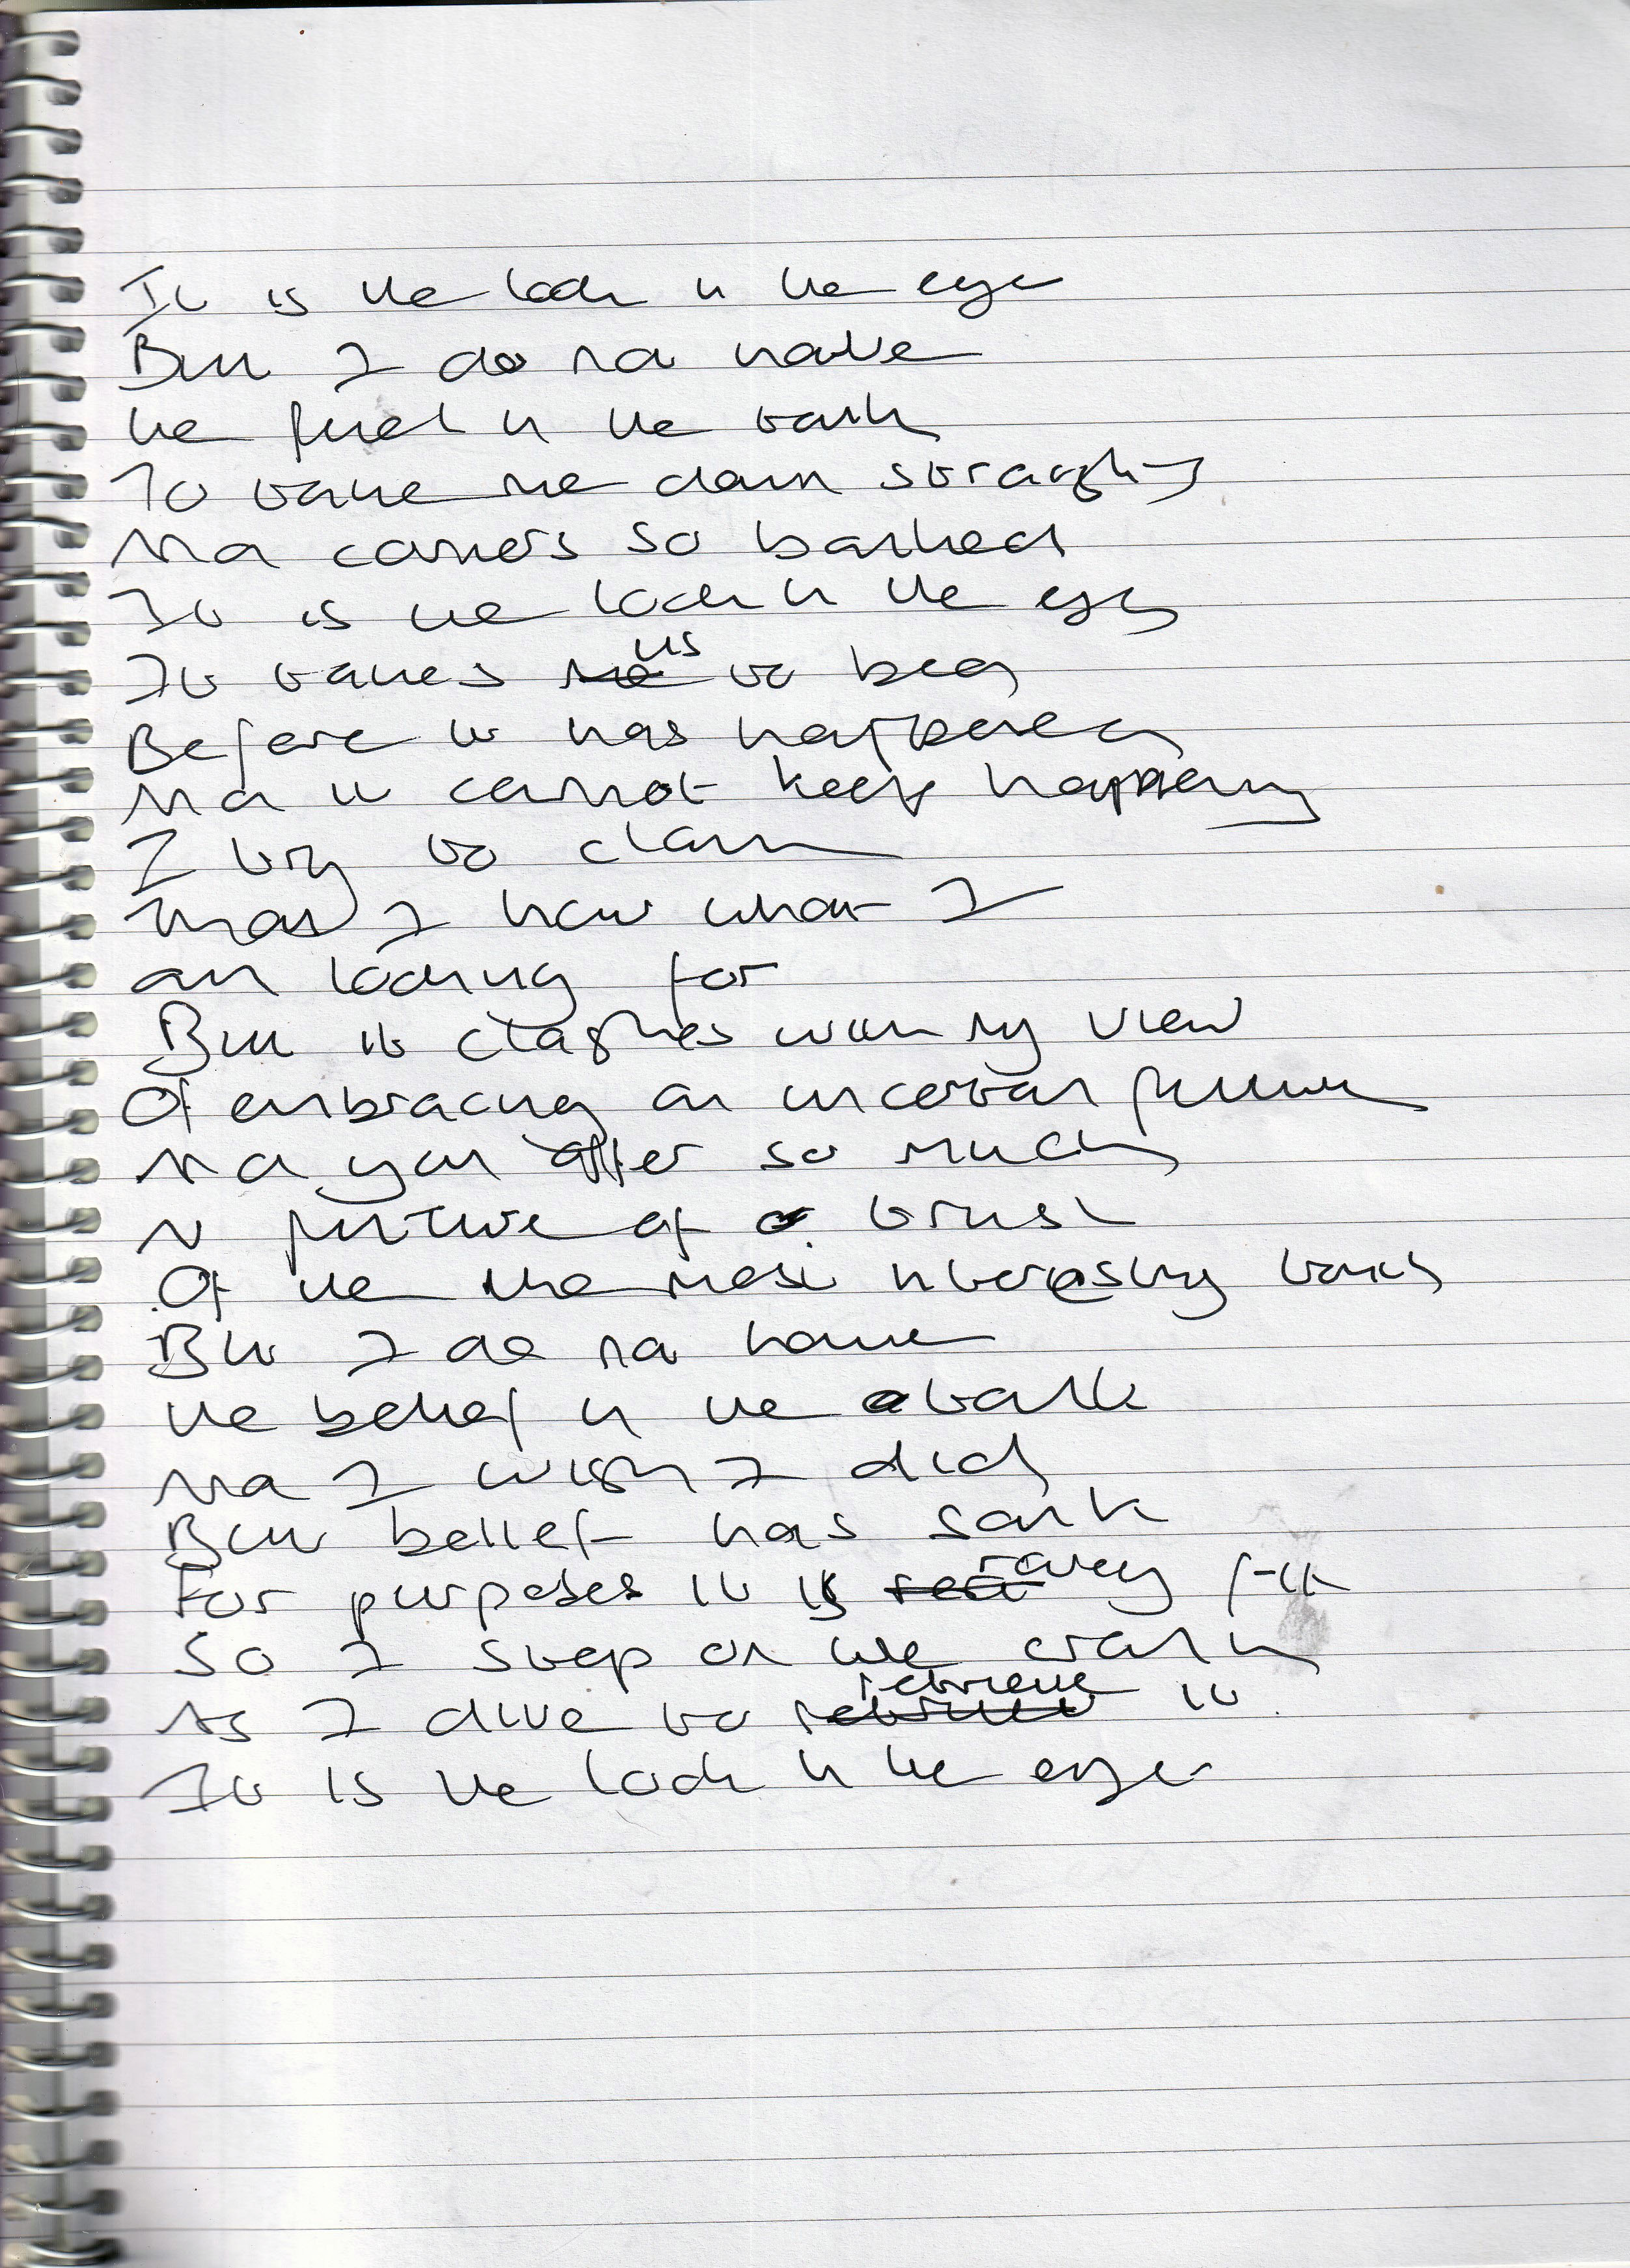 It is the look in the eye
But I do not have
the fuel in the tank
To take me down straights
And corners so banked
It is the look in the eye
It takes us to bed
Before it has happened
And it cannot keep happening
I try to claim
That I know what I
am looking for
But it clashes with my view
Of embracing an uncertain future
And you offer so much
In future of trust
Of the the most interesting
But I do not have
the belief in the tank
And I wish I did
But belief has sank
For purposes it is rarely
So I step on the
As I dive to retrieve it
It is the look in the eye